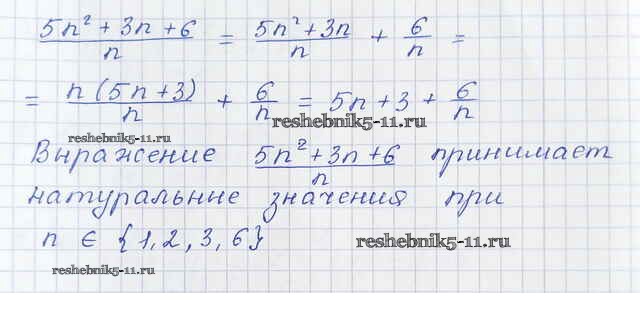 (5n² + 3n + 6)/n = (5n² + 3n)/n + 6/n =
= n(5n + 3)/n + 6/n = 5n + 3 + 6/n
reshebnik5-11.ru
reshebnik5-11.ru
Выражение (5n² + 3n + 6)/n принимает
натуральные значения при
n ∈ {1, 2, 3, 6}
reshebnik5-11.ru
reshebnik5-11.ru